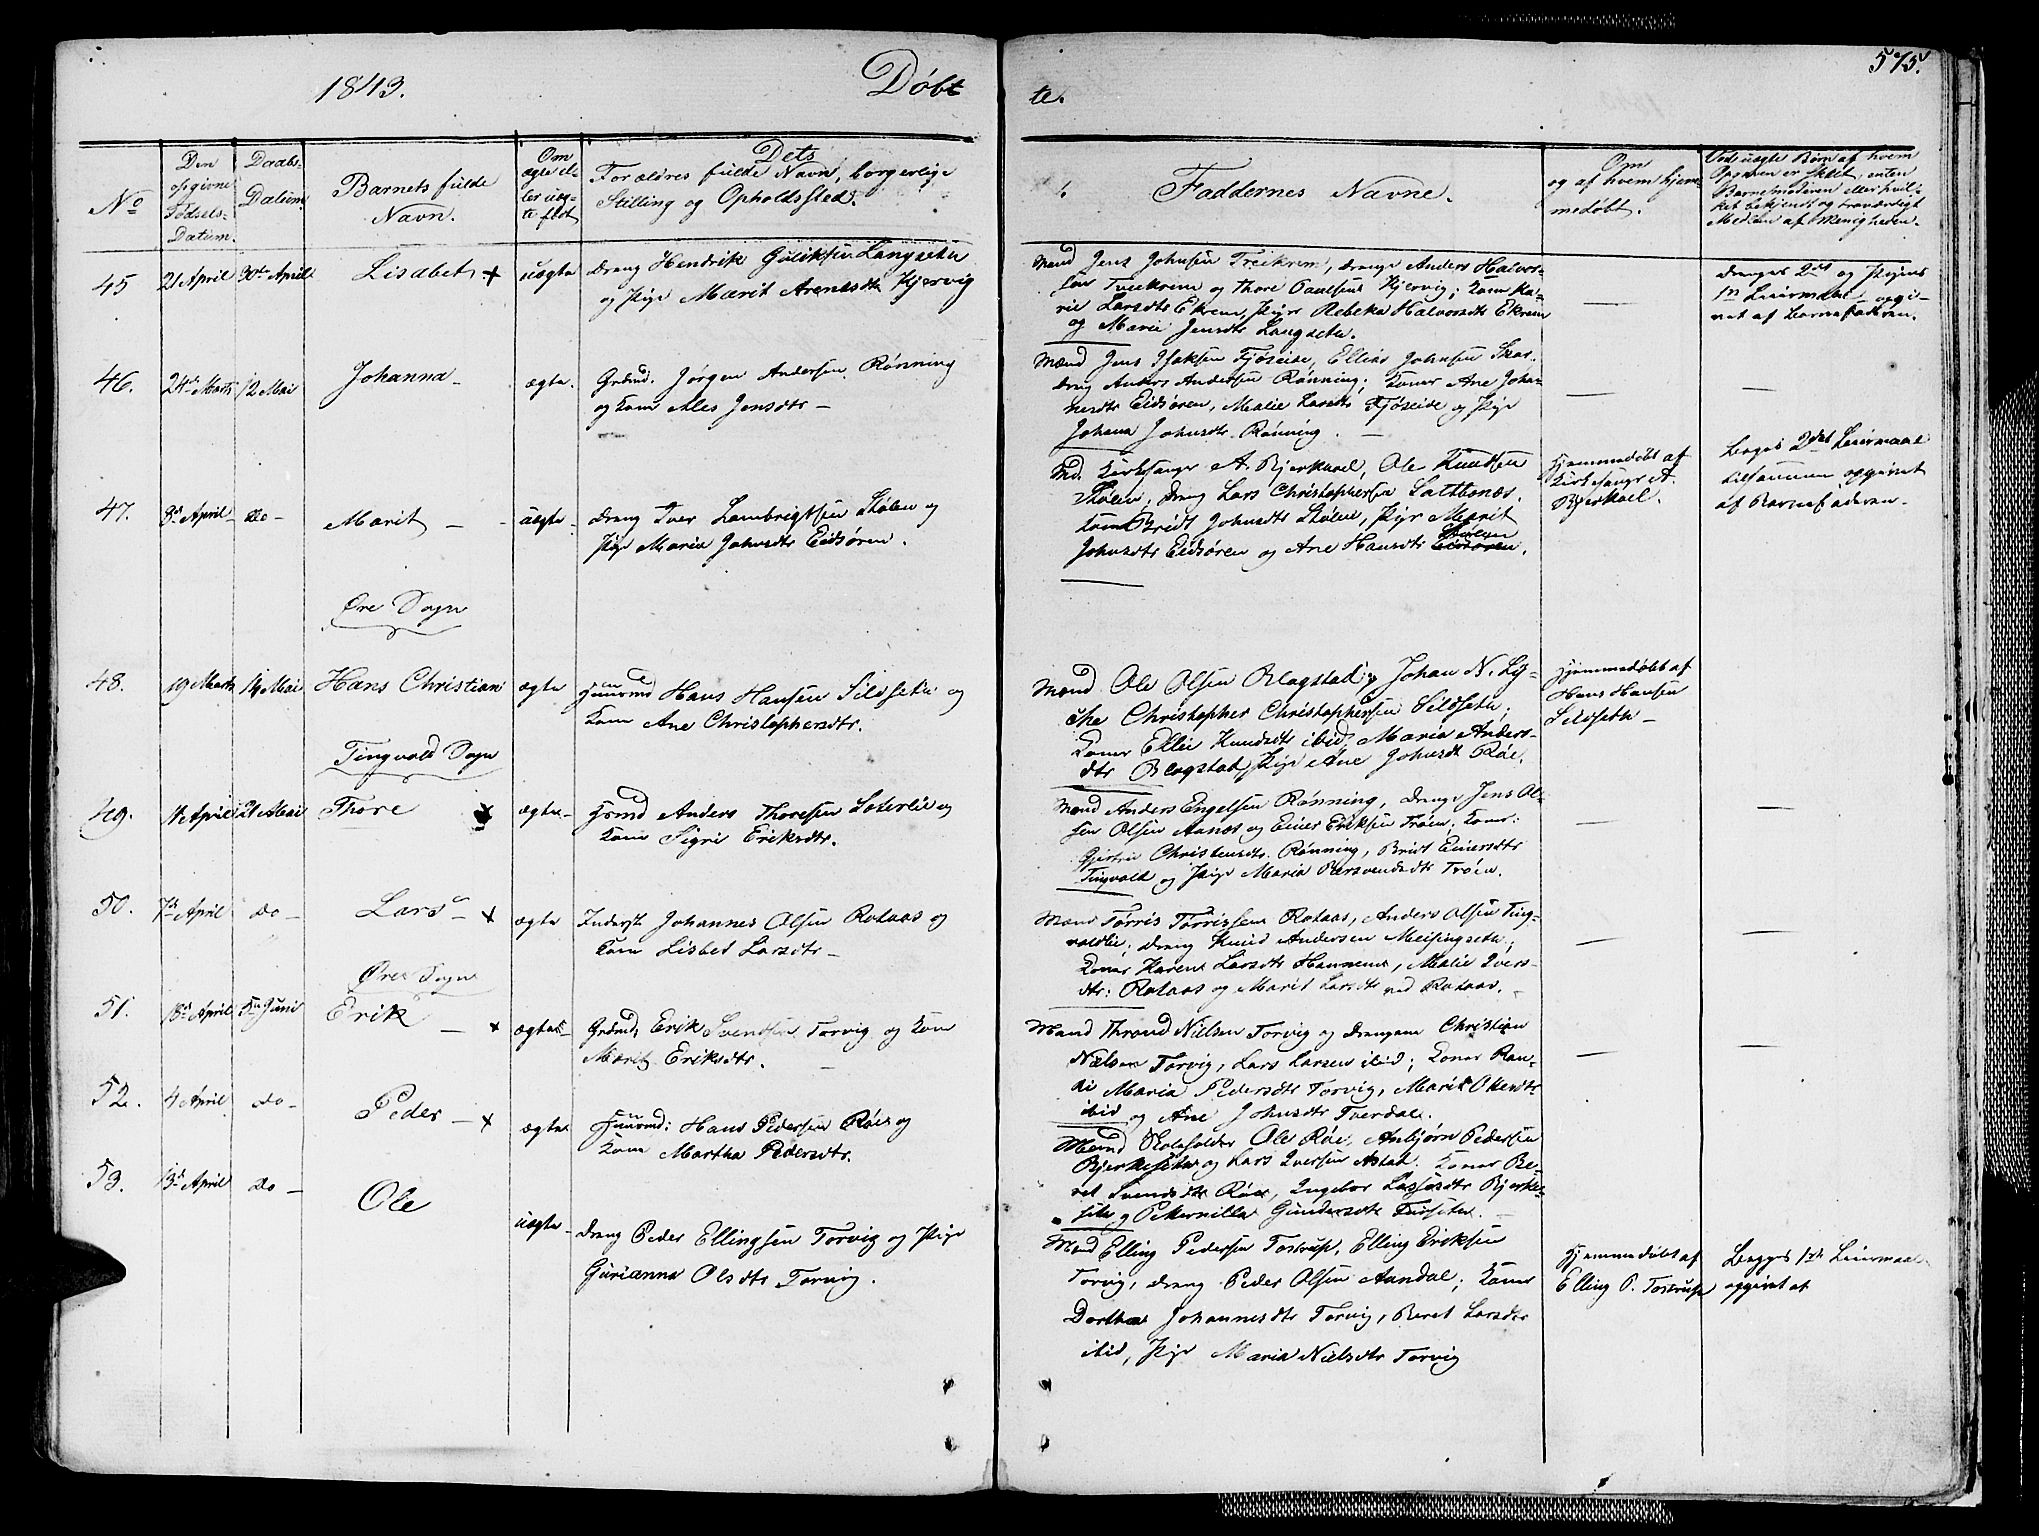 1843.
Døbte.
575.
No
Den opgivne Fødsels-Datum.
Daabs-Datum.
Barnets fulde Navn.
Om ægte eller uægte født
Dets Forældres fulde Navn, borgerlige Stilling og Opholdssted.
Faddernes Navne.
Om og af hvem hjemmedøbt.
Ved uægte Børn af hvem
Opgaven er skeet, enten
Barnemoderen eller hvil-
ket bekjendt og troværdigt
Medlem af Menigheden.
45
21 April
30te April
Lisabet
uægte
Dreng Hendrik Guliksen Langseth
og Pige Marit Arentsdtr Kjervig
Mænd Jens Johnsen Treekrem, Drenge Anders Halvor-
sen Treekrem og Thore Paulsen Kjervig; Kone Ka-
ri Larsdtr Ekrem, Piger Rebeka Halvorsdtr Ekrem
og Marie Jensdtr Langseth.
Drenges 2det og Pigens
1te Leiermaal, opgi-
vet af Barnefaderen.
46.
24de Marts
12 Mai
Johanna
ægte.
Grdmd. Jørgen Andersen Rønning
og Kone Ales Jensdtr
Mænd Jens Isaksen Fjøseide, Elling Johnsen
Dreng Anders Andersen Rønning; Koner Ane Johan-
nesdtr Eidsøren, Malie Larsdtr Fjøseide og Pige
Johana Johnsdtr Rønning.
47.
8de April
do
Marit
uægte
Dreng Iver Lambrigtsen Stølen og
Pige Maria Johnsdtr Eidsøren.
Md. Kirkesanger A. Bjerkael, Ole Knudsen
Stølen, Dreng Lars Christophersen Saltbones.
Kone Bridt Johnsdtr Stølen, Piger Marit
Johnsdtr Eidsøren og Ane Hansdtr Eidsøren. Stølen
Hjemmedøbt af
Kirkesanger A.
Bjerkael.
Beges 2det Leiermaal
tilsammen opgivet
af Barnefaderen.
Øre Sogn
48.
19 Marts
14 Mai
Hans Christian
ægte
Huusmd Hans Hansen Sildseth og
Kone Ane Christophersdtr.
Mænd Ole Olsen Blagstad, Johan N. Ly-
che Christopher Christophersen Sildseth;
Koner Ellie Knudsdtr ibid, Maria Anders-
dtr Blagstad, Pige Ane Johnsdt Røe.
Hjemmedøbt af
Hans Hansen
Sildseth
Tingvold Sogn
49.
14 April
21 Mai
Thore
ægte
Hsmd Anders Thoresen Soterlie og
Kone Sigri Eriksdtr.
Mænd Anders Engelsen Rønning, Drenge Jens Ol-
sen Olsen Aanes og Einer Eriksen Trøen; Koner:
Gjertru Christensdtr Rønning, Bridt Einersdtr
Tingvold og Pige Maria Bersvendsdtr Trøen.
50.
7de April
do
Lars
ægte
Inderst Johannes Olsen Rotaas og
Kone Lisbet Larsdtr
Mænd Tørris Tørrissen Rotaas, Anders Olsen Ting-
voldlie; Dreng Knud Andersen Meisingseth;
Koner Karen Larsdtr Hannemo, Malie Ivers-
dtr: Rotaas og Marit Larsdtr ved Rotaas.
Øre Sogn
51.
18de April
5te Juni
Erik
ægte
Grdmd. Erik Svendsen Torvig og Kone
Marit Eriksdtr.
Mænd Thrond Nielsen Torvig og Drengene Christian
Nielsen Torvig, Lars Larsen ibid; Koner Ran-
di Maria Pedersdtr Torvig, Marit Olsdtr
ibid og Ane Johnsdtr Tverdal.
52.
4 April
do
Peder
ægte
Huusmd: Hans Pedersen Røe og
Kone Martha Pedersdtr.
Mænd Skoleholder Ole Røe, Anbjørn Pedersen
Bjerkesether og Lars Iversen Astad. Koner Be-
ret Svendsdtr Røe, Ingebor Lassesdtr Bjerke-
seth og Pekernilla Gundersdtr
53.
13de April
do
Ole
uægte
Dreng Peder Ellingsen Torvig og Pige
Gurianna Olsdtr Torvig.
Mænd Elling Pedersen Tostrup, Elling Eriksen
Torvig, Dreng Peder Olsen Aandal; Koner
Dorthea Johannesdtr Torvig, Beret Larsdtr
ibid, Pige Maria Nielsdtr Torvig
Hjemmedøbt af
Elling P. Tostrup
Begges 1ste Leiermaal
opgivet af